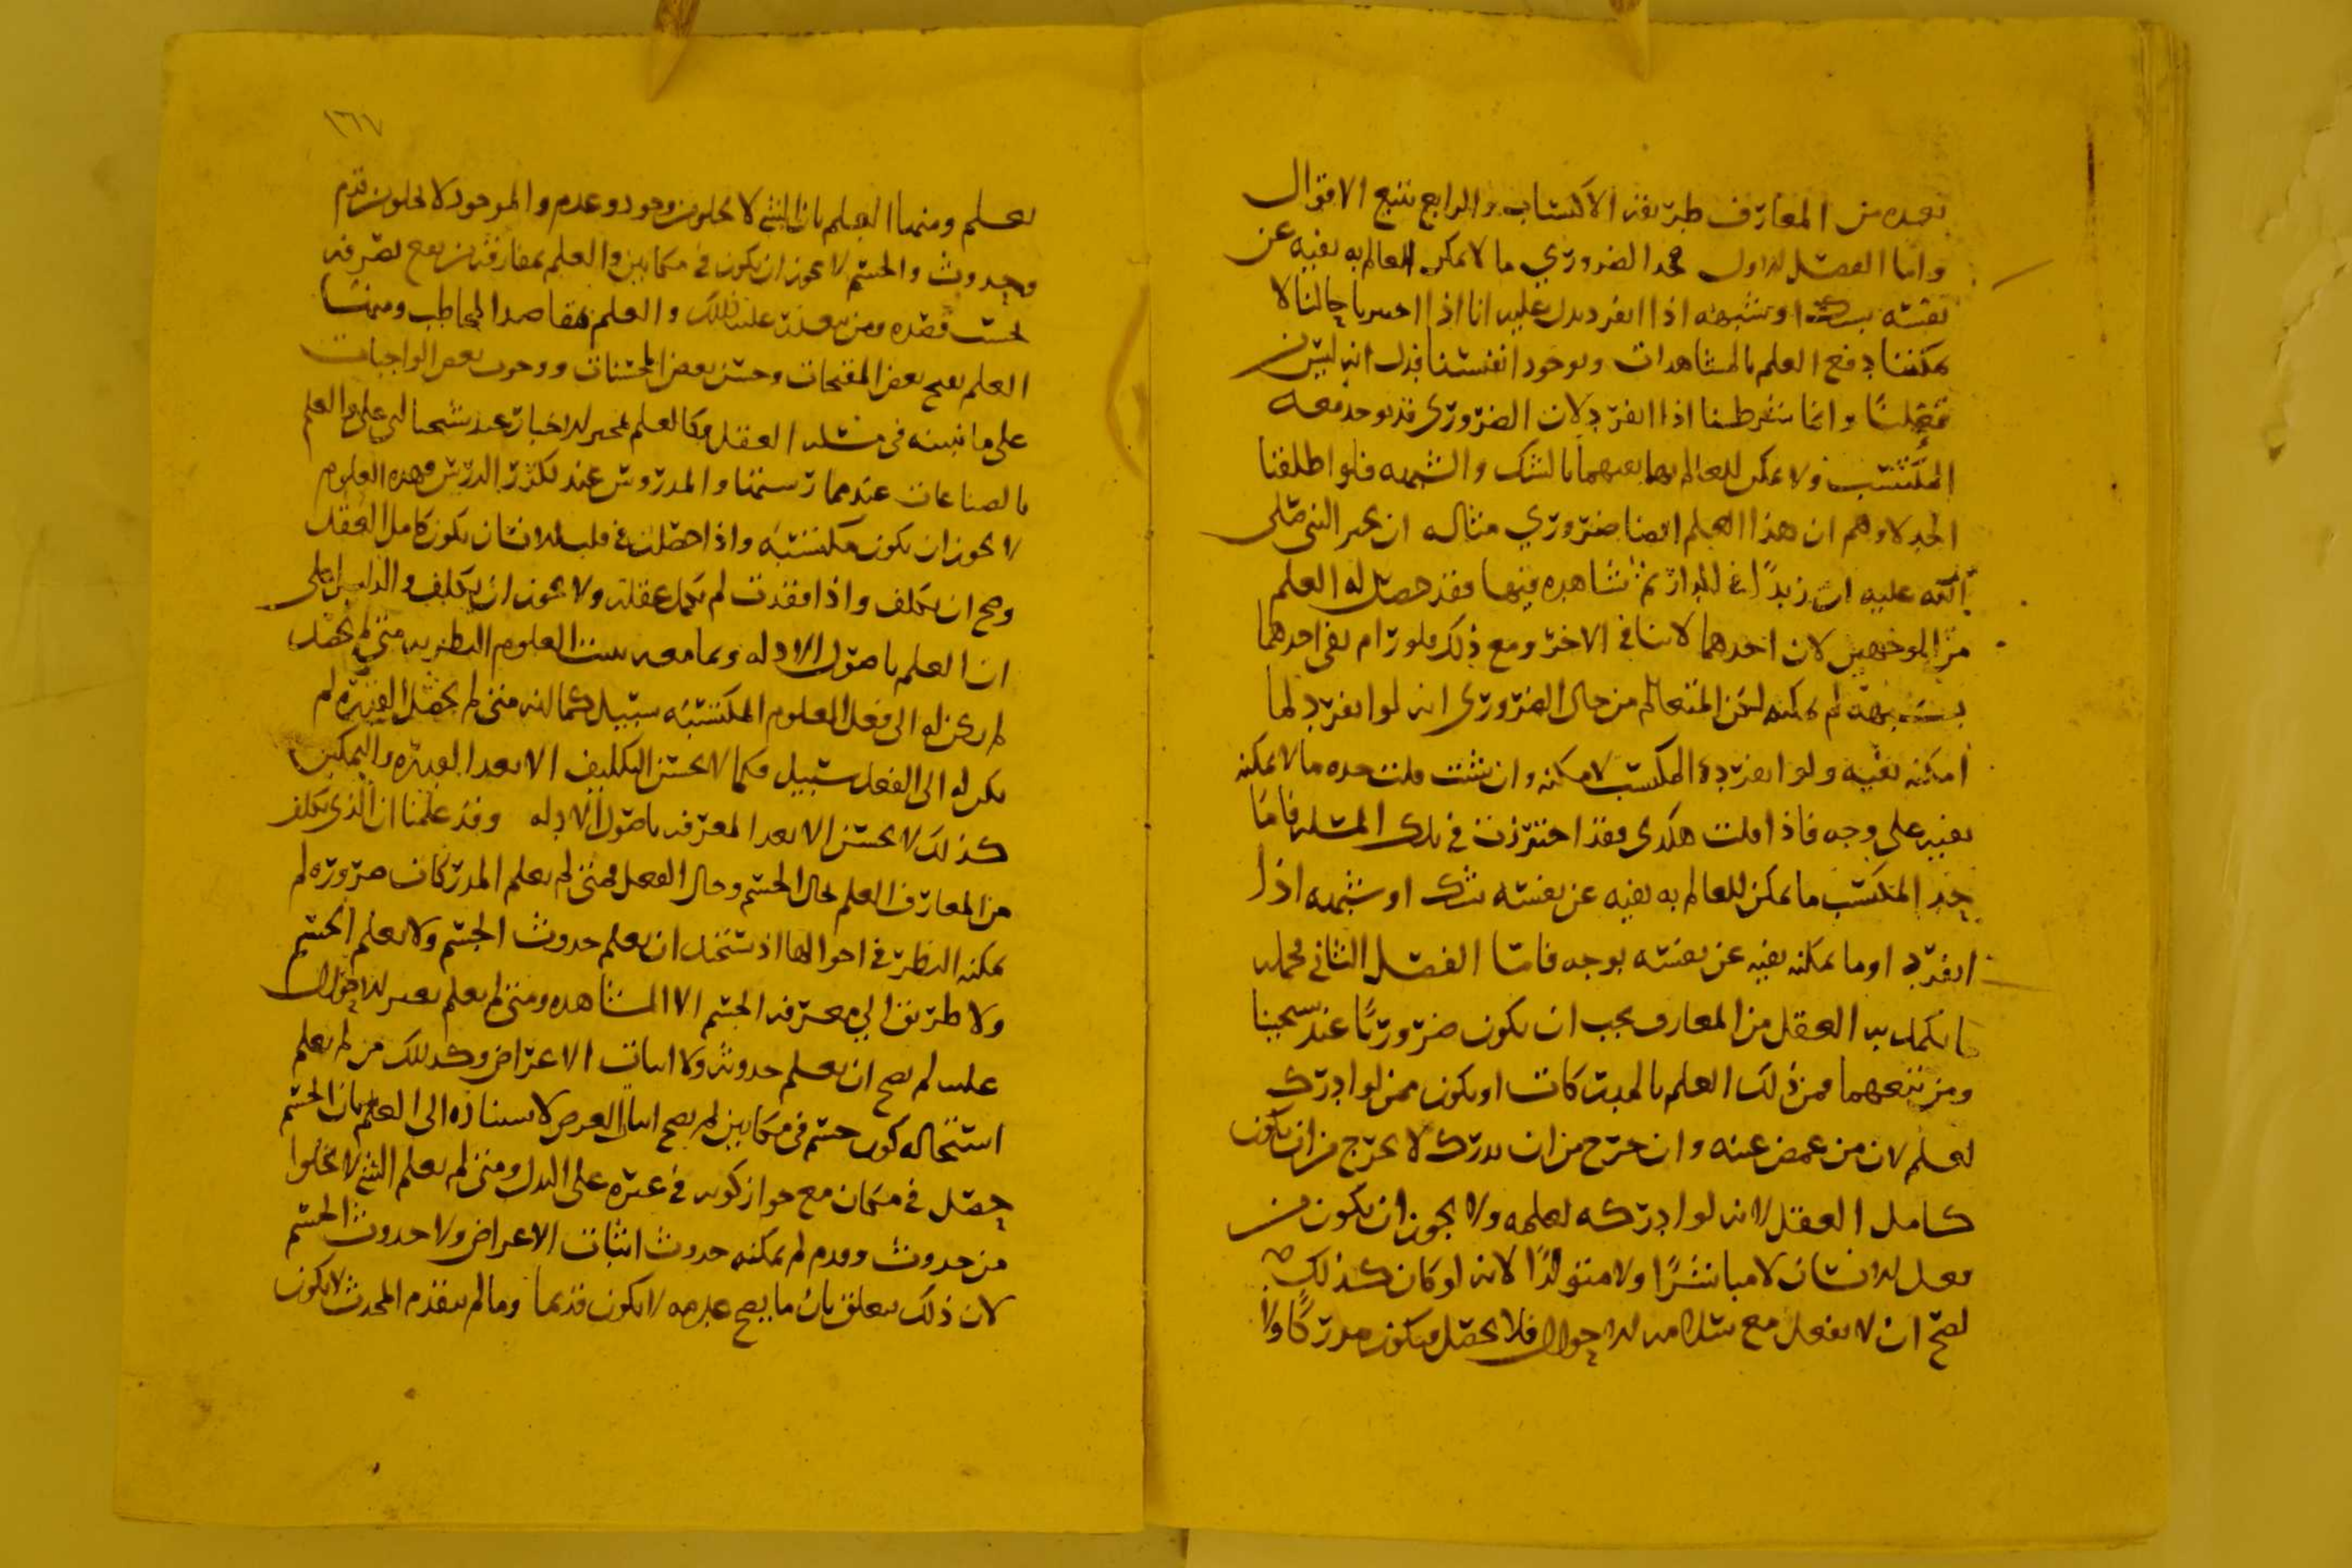 بعده من المعارف طريقه الاكتساب والرابع تتبع الاقوال
واما الفصل الاول فحد الضروري ما لا يمكن العالم به نفيه عن
نفسه بشك او شبهه اذا انفرد يدل عليه انا اذا اختبرنا حالنا لا
يمكننا دفع العلم بالمشاهدات وبوجود انفسنا فدل انه ليس من
فعلنا وانما شرطنا اذا انفرد لان الضروري قد يوجد معه
المكتسب ولا يمكن للعالم بهما نفيهما بالشك والشبهه فلو اطلقنا
الحد لاوهم ان هذا العلم ايضا ضروري مثاله ان يخبر النبي صلى
الله عليه ان زيدًا في الدار ثم نشاهده فيها فقد حصل له العلم
من الوجهين لان احدهما لا ينافي الاخر ومع ذلك فلو رام نفي احدهما
بشبهة لم يمكنه لكن المتعالم من حال الضروري انه لو انفرد لما
امكنه نفيه ولو انفرد المكتسب لامكنه وان شئت قلت حده ما لا يمكنه
نفيه على وجه فاذا قلت هكذى فقد احترزت في تلك المسله فاما
حد المكتسب ما يمكن للعالم به نفيه عن نفسه بشك او شبهه اذا
انفرد او ما يمكنه نفيه عن نفسه بوجه فاما الفصل الثاني فجمله
ما يكمل به العقل من المعارف يجب ان يكون ضروريًا عند شيخينا
ومن تبعهما فمن ذلك العلم بالمدركات او يكون ممن لو ادرك
لعلم لان من غمض عينه وان خرج من ان يدرك لا يخرج من ان يكون
كامل العقل لانه لو ادركه لعلمه ولا يجوز ان يكون من
فعل الانسان لا مباشرًا ولا متولدًا لانه لو كان كذلك
لصح ان لا يفعل مع سلامه الاحوال فلا يحصل فيكون مدركًا ولا
١٦٧
يعلم ومنها العلم بان الشي لا يخلو من وجود وعدم والموجود لا يخلو من قدم
وحدوث والجسم لا يجوز ان يكون في مكانين والعلم بمفارقة من يقع تصرفه
بحسب قصده ومن يتعذر عليه ذلك والعلم بمقاصد المخاطب ومنها
العلم بقبح بعض المقبحات وحسن بعض المحسنات ووجوب بعض الواجبات
على ما نبينه في مسله العقل وكالعلم بمخبر الاخبار عند شيخنا ابي علي والعلم
بالصناعات عند ممارستها والمدروس عند تكرر الدرس وهذه العلوم
لا يجوز ان يكون مكتسبه واذا حصلت في قلب الانسان يكون كامل العقل
وصح ان يكلف واذا فقدت لم يكمل عقله ولا يجوز ان يكلف والدليل على
ان العلم باصول الادله وبما معه يست العلوم النظريه متى لم يحصل
لم يكن له الى فعل العلوم المكتسبه سبيل كما انه متى لم يحصل القدره لم
يكن له الى الفعل سبيل وكما لا يحسن التكليف الا بعد القدره والتمكين
كذلك لا يحسن الا بعد المعرفه باصول الادله وقد علمنا ان الذي يكلف
من المعارف العلم بحال الجسم وحال الفعل فمتى لم يعلم المدركات ضروره لم
يمكنه النظر في احوالها اذ يستحيل ان يعلم حدوث الجسم ولا يعلم الجسم
ولا طريق الى معرفه الجسم الا المشاهده ومتى لم يعلم تغير الاحوال
عليه لم يصح ان يعلم حدوثه ولا اثبات الاعراض وكذلك من لم يعلم
استحاله كون جسم في مكانين لم يصح اثبات العرض لاستناده الى العلم بان الجسم
حصل في مكان مع جواز كونه في غيره على البدل ومتى لم يعلم الشي لا يخلوا
من حدوث وقدم لم يمكنه حدوث اثبات الاعراض ولا حدوث الجسم
لان ذلك يتعلق بان ما يصح عدمه لا يكون قديما وما لم يتقدم المحدث لا يكون